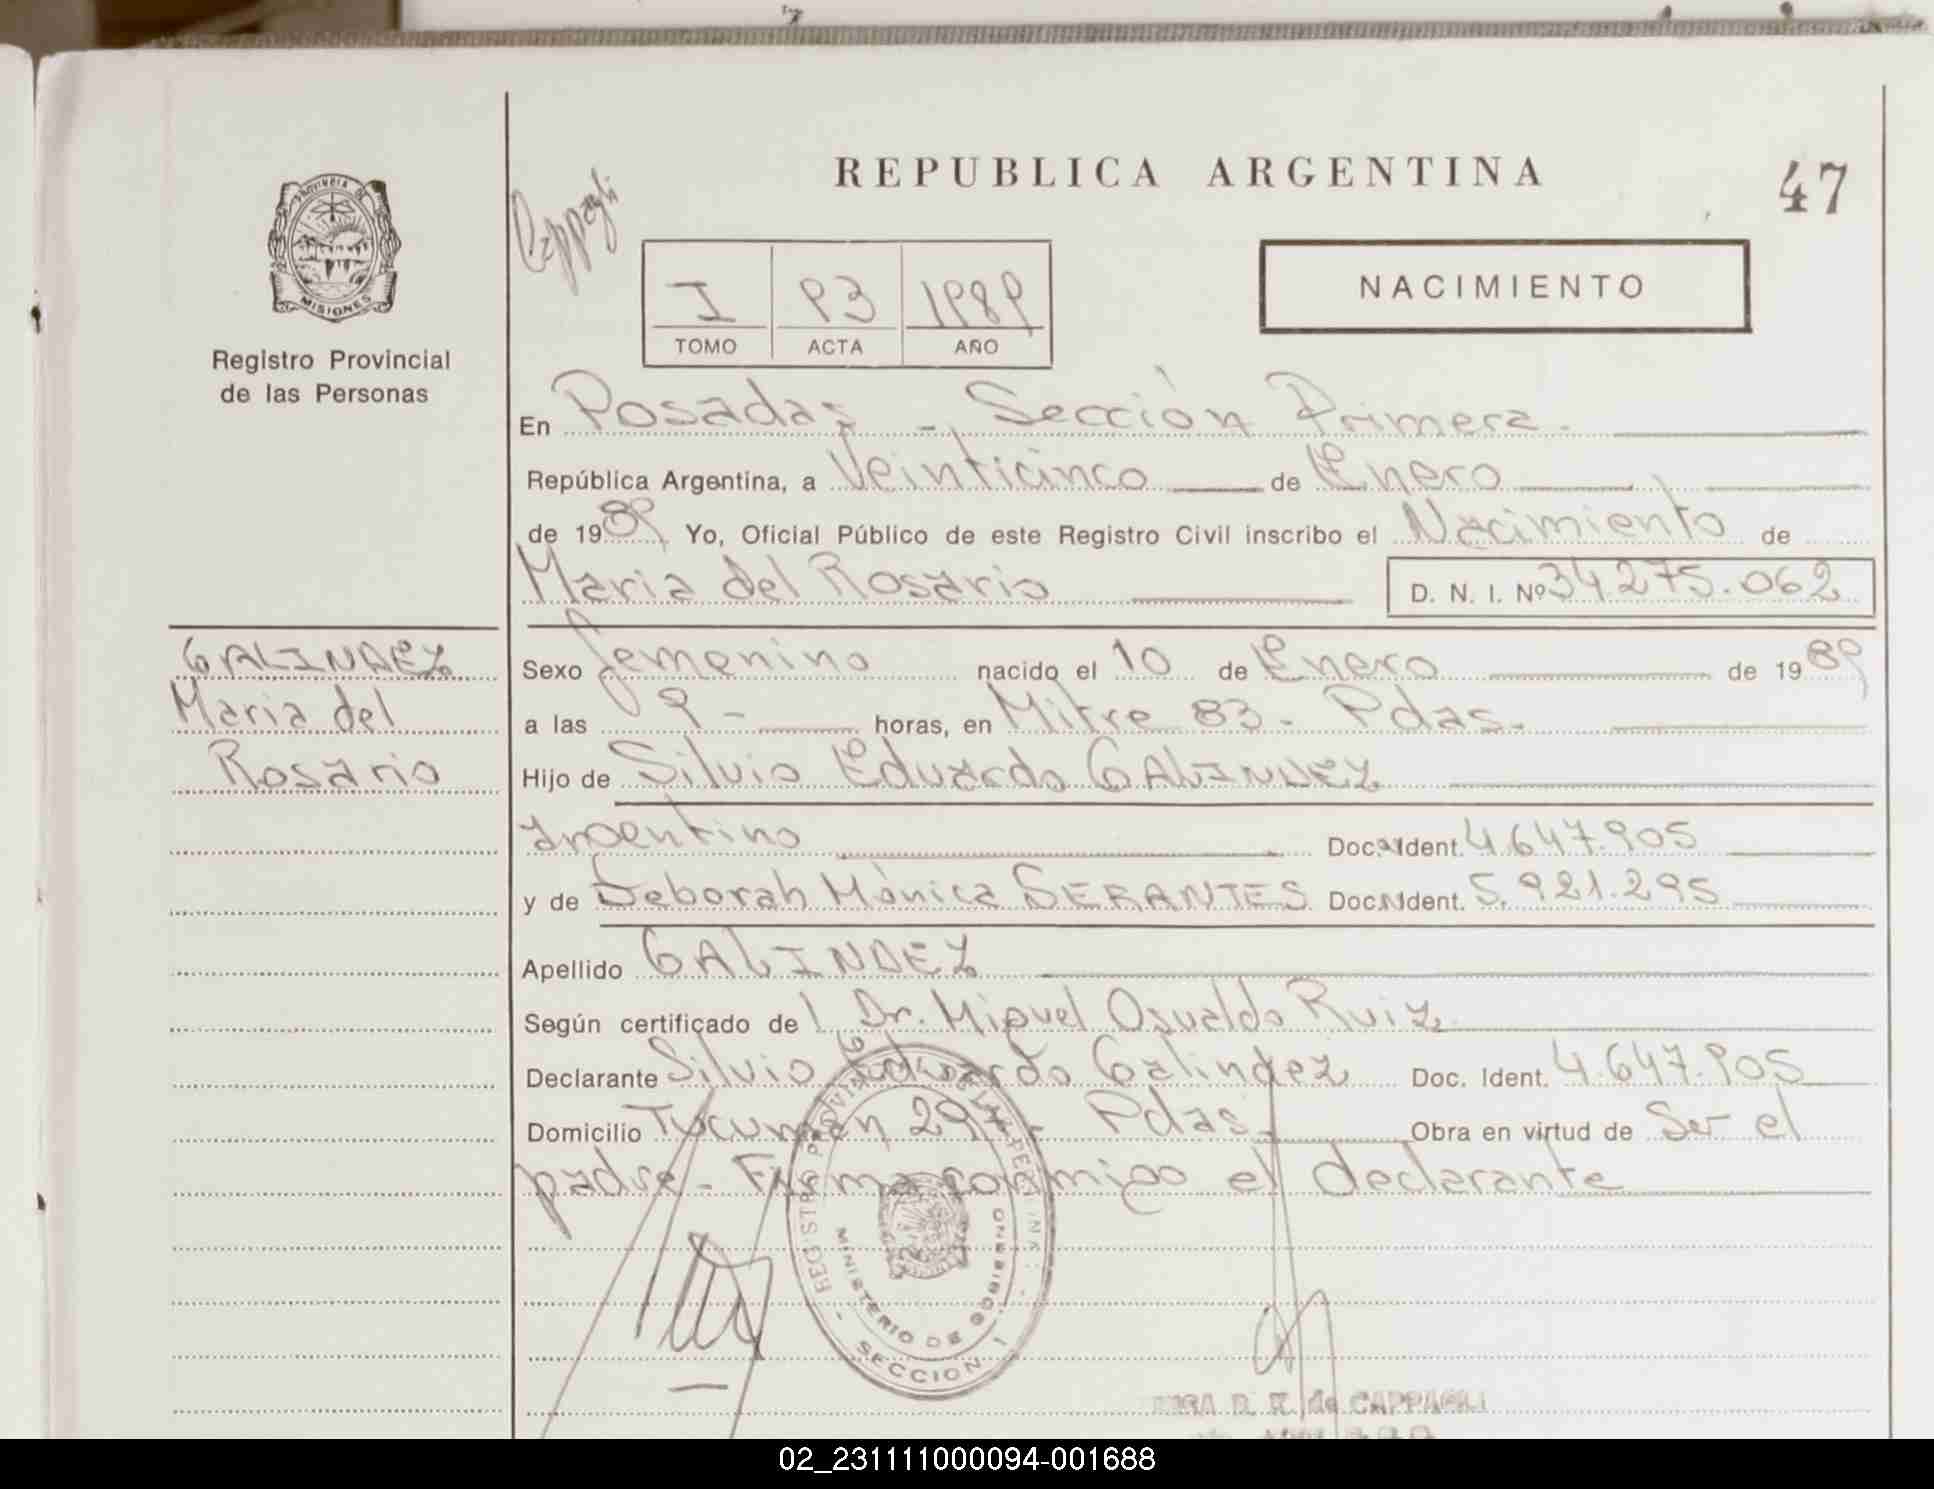 REPUBLICA ARGENTINA
47
Cappagli
PROVINCIA DE
MISIONES
Registro Provincial
de las Personas
I 93 1989
TOMO ACTA AÑO
NACIMIENTO
En Posadas - Sección Primera.
República Argentina, a Veinticinco de Enero
de 1989 Yo, Oficial Público de este Registro Civil inscribo el Nacimiento de
Maria del Rosario D. N. I. Nº 34.275.062
GALINDEZ
Maria del
Rosario
Sexo femenino nacido el 10 de Enero de 1989
a las 9 - horas, en Mitre 83 - Pdas.
Hijo de Silvio Eduardo GALINDEZ
argentino Doc. Ident. 4.647.905
y de Deborah Mónica SERANTES Doc. Ident. 5.921.295
Apellido GALINDEZ
Según certificado del Dr. Miguel Osvaldo Ruiz
Declarante Silvio Eduardo Galindez Doc. Ident. 4.647.905
Domicilio Tucumán Pdas. Obra en virtud de Ser el
padre - Firma conmigo el declarante
REGISTRO PROVINCIAL DE LAS PERSONAS
MINISTERIO DE GOBIERNO
- SECCION 1 -
de CAPPAGLI
02_231111000094-001688